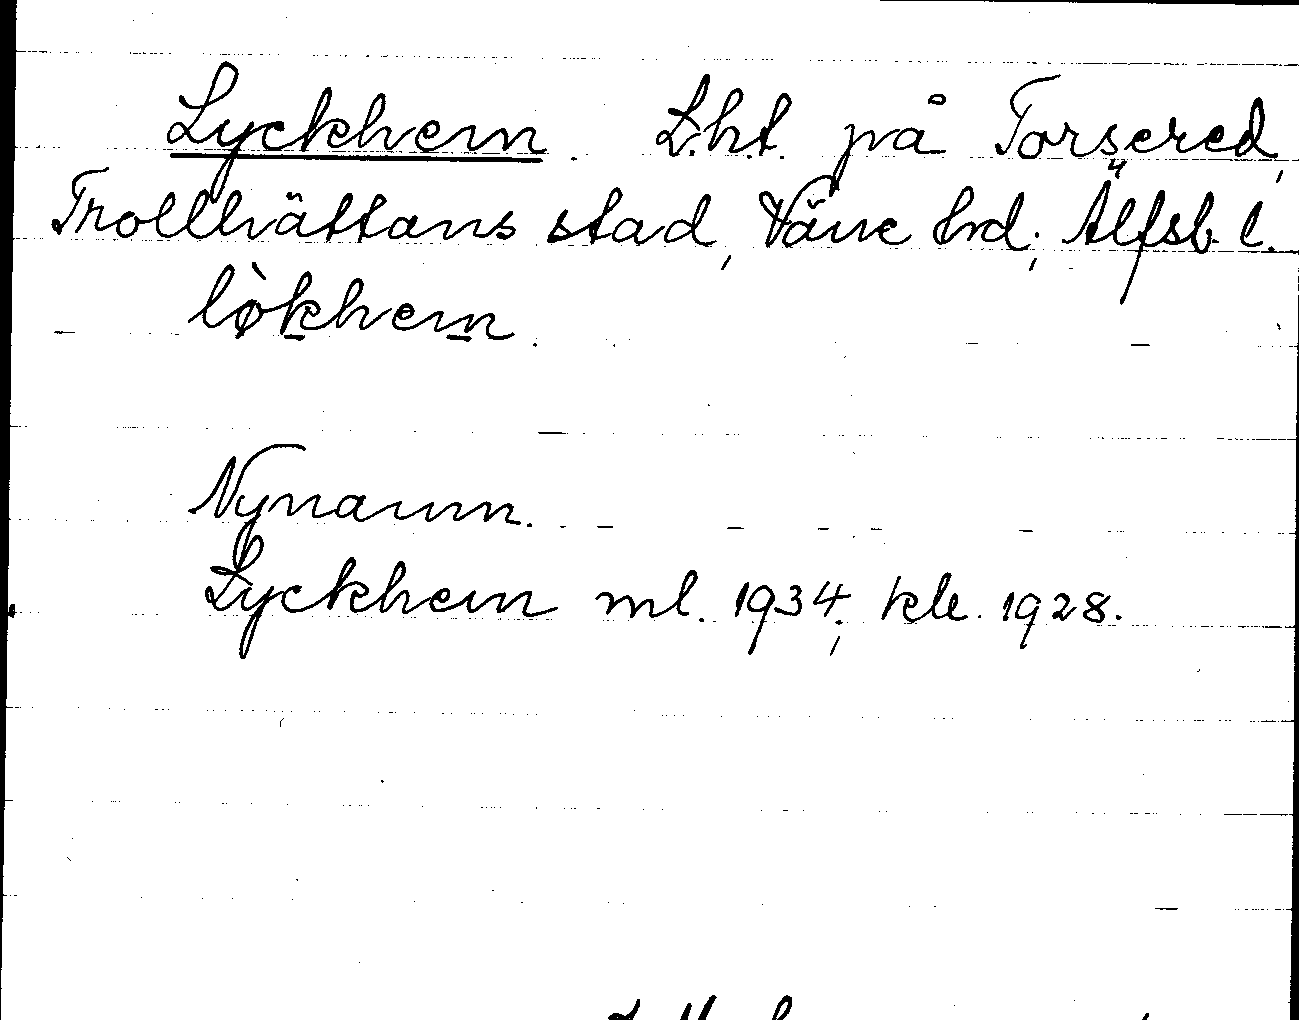 Lyckhem. L.ht. på Torsered,
Trollhättans stad, Väne hd, Älfsb. l.
lø̀khem.
Nynamn.
Lyckhem ml. 1934, kle. 1928.